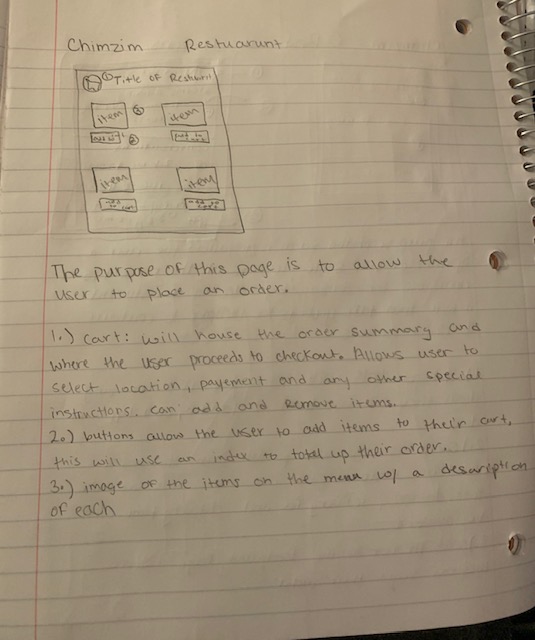 Chimzim Restuarunt
① Title of Resturnt
item ③ item
add to ② add to
item item
add to cart
The purpose of this page is to allow the
user to place an order.
1.) cart: will house the order summary and
where the user proceeds to checkout. Allows user to
select location, payement and any other special
instructions. can add and remove items.
2.) buttons allow the user to add items to their cart,
this will use an index to total up their order.
3.) image of the items on the menu w/ a desuription
of each